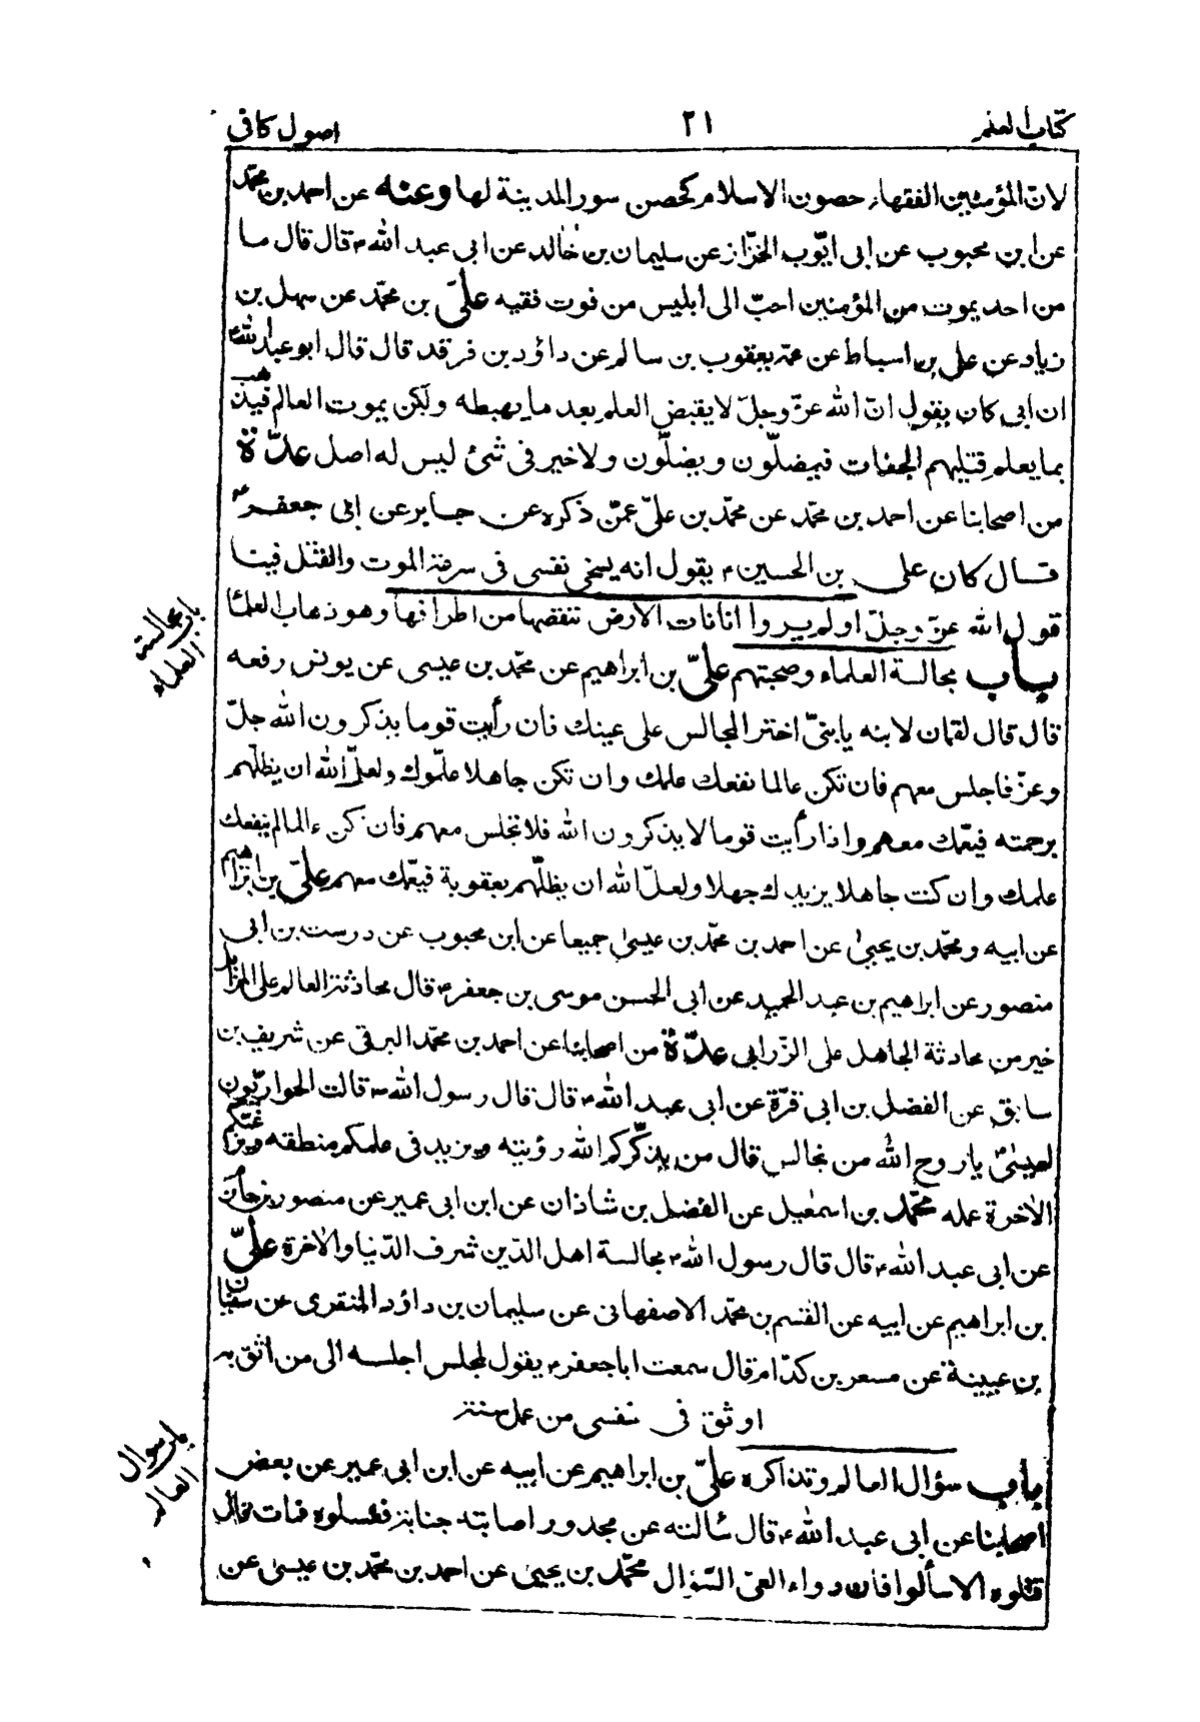 كتاب العلم
٢١
اصول كافى
لان المؤمنين الفقهاء حصون الاسلام كحصن سور المدينة لها وعنه عن احمد بن محمّد
عن ابن محبوب عن ابى ايّوب الخزّاز عن سليمان بن خالد عن ابى عبد الله ع قال قال ما
من احد يموت من المؤمنين احبّ الى ابليس من فوت فقيه علىّ بن محمّد عن سهل بن
زياد عن على بن اسباط عن عمّه يعقوب بن سالم عن داؤد بن فرقد قال قال ابو عبد الله ع
ان ابى كان يقول انّ الله عزّ وجلّ لا يقبض العلم بعد ما يهبطه ولكن يموت العالم فيذهب
بما يعلم فتليهم الجفات فيضلّون ويضلّون ولا خير فى شئ ليس له اصل عدّة
من اصحابنا عن احمد بن محمّد عن محمّد بن علىّ عمّن ذكره عن جابر عن ابى جعفر ع
قال كان على بن الحسين ع يقول انه يسخى نفسى فى سرعة الموت والقتل فينا
قول الله عزّ وجلّ اولم يروا انا نات الارض ننقصها من اطرافها وهو ذهاب العلمآء
باب مجالسة العلماء وصحبتهم علىّ بن ابراهيم عن محمّد بن عيسى عن يونس رفعه
قال قال لقمان لابنه يا بنىّ اختر المجالس على عينك فان رأيت قوما يذكرون الله جلّ
وعزّ فاجلس معهم فان تكن عالما نفعك علمك وان تكن جاهلا علّموك ولعلّ الله ان يظلّهم
برحمته فيعمّك معهم واذا رأيت قوما لا يذكرون الله فلا تجلس معهم فان تكن عالما لم ينفعك
علمك وان كنت جاهلا يزيدك جهلا ولعلّ الله ان يظلّهم بعقوبة فيعمّك معهم علىّ بن ابراهيم
عن ابيه ومحمّد بن يحيى عن احمد بن محمّد بن عيسى جميعا عن ابن محبوب عن درست بن ابى
منصور عن ابراهيم بن عبد الحميد عن ابى الحسن موسى بن جعفر ع قال محادثة العالم على المزابل
خير من محادثة الجاهل على الزّرابى عدّة من اصحابنا عن احمد بن محمّد البرقى عن شريف بن
سابق عن الفضل بن ابى قرّة عن ابى عبد الله ع قال قال رسول الله ص قالت الحواريّون
لعيسى ع يا روح الله من نجالس قال من يذكّركم الله رؤيته ويزيد فى علمكم منطقه ويرغّبكم فى
الاخرة عمله محمّد بن اسمعيل عن الفضل بن شاذان عن ابن ابى عمير عن منصور بن حازم
عن ابى عبد الله ع قال قال رسول الله ص مجالسة اهل الدّين شرف الدّنيا والاخرة علىّ
بن ابراهيم عن ابيه عن القسم بن محمّد الاصفهانى عن سليمان بن داؤد المنقرى عن سفيان
بن عيينة عن مسعر بن كدّام قال سمعت ابا جعفر ع يقول لمجلس اجلسه الى من اثق به
اوثق فى نفسى من عمل سنة
باب سؤال العالم وتذاكره علىّ بن ابراهيم عن ابيه عن ابن ابى عمير عن بعض
اصحابنا عن ابى عبد الله ع قال سألته عن مجدور اصابته جنابة فغسلوه فمات فقال
قتلوه الا سألوا فان دواء العىّ السّؤال محمّد بن يحيى عن احمد بن محمّد بن عيسى عن
باب مجالسة
العلماء
باب سؤال
العالم